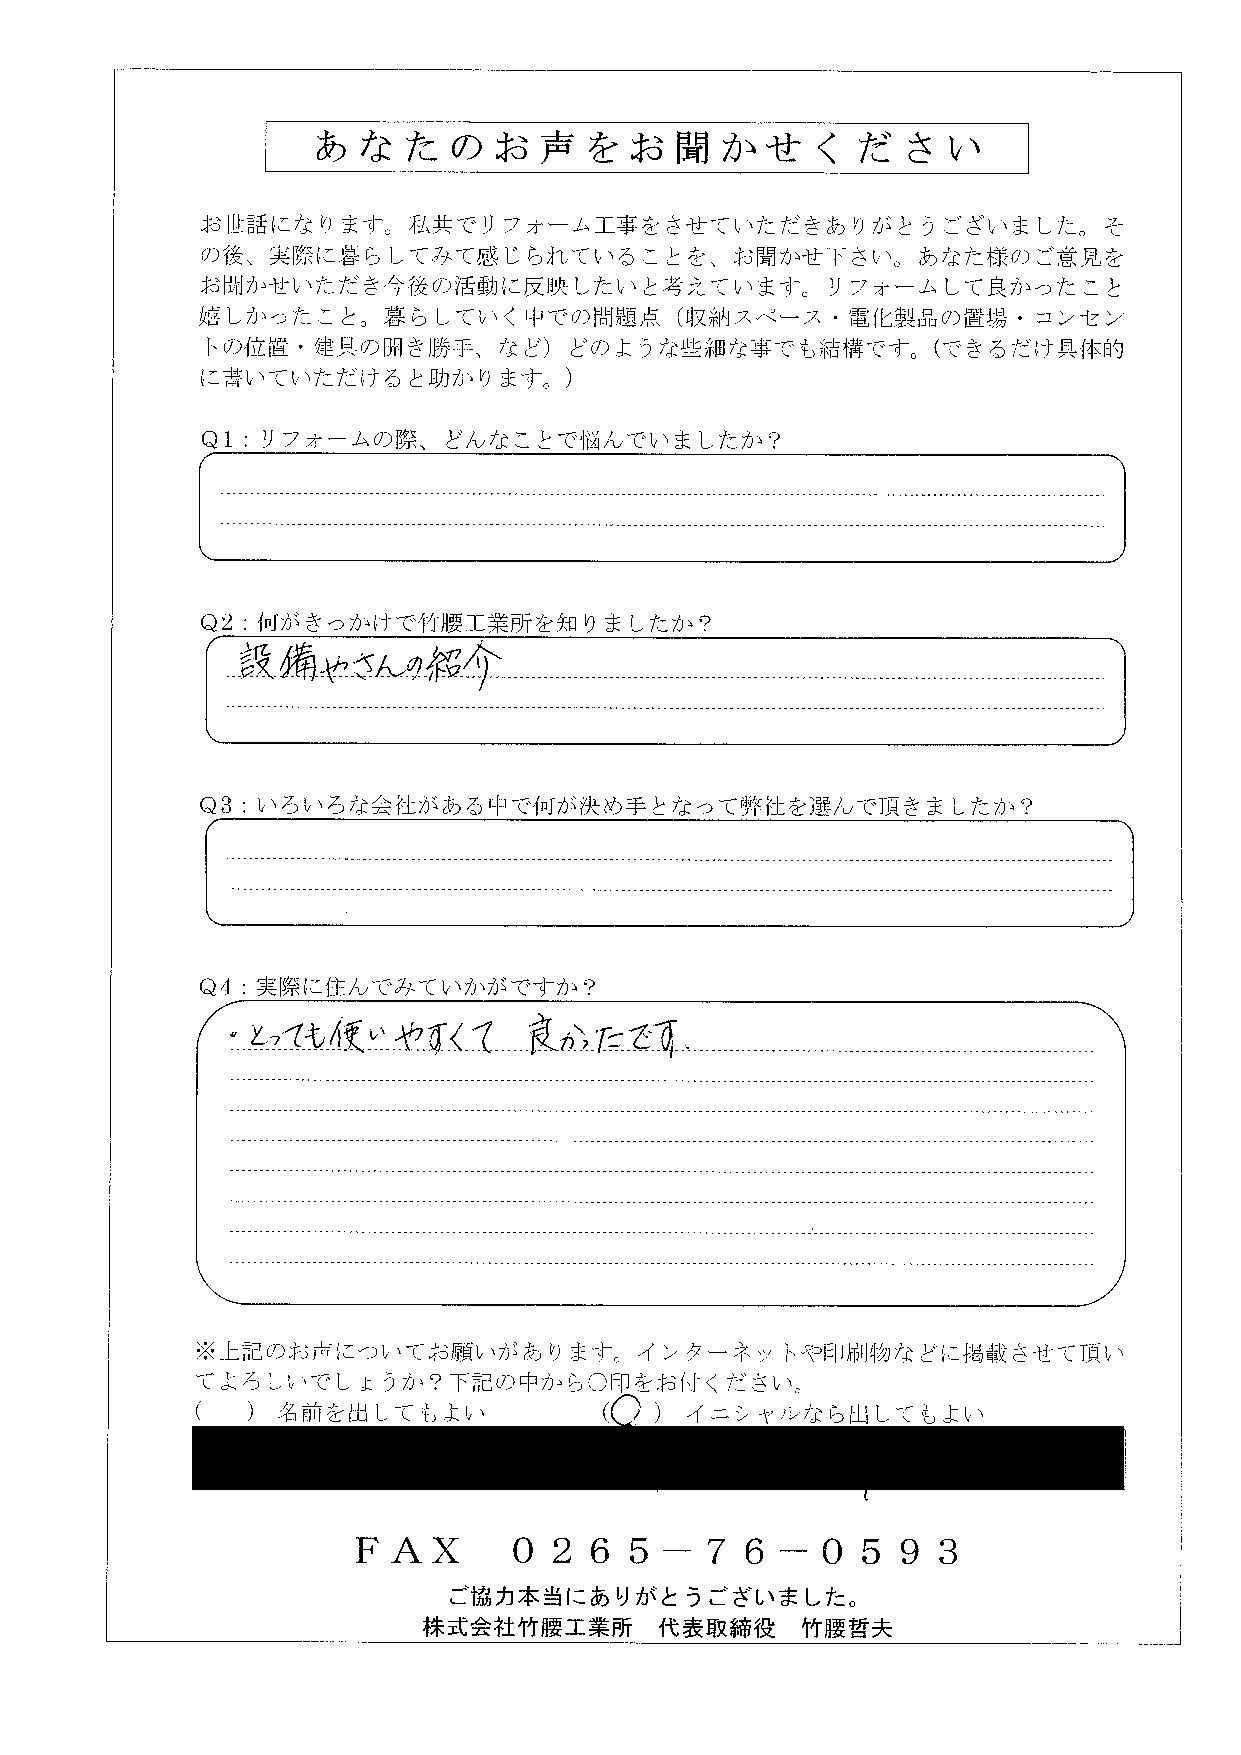 あなたのお声をお聞かせください
お世話になります。私共でリフォーム工事をさせていただきありがとうございました。そ
の後、実際に暮らしてみて感じられていることを、お聞かせ下さい。あなた様のご意見を
お聞かせいただき今後の活動に反映したいと考えています。リフォームして良かったこと
嬉しかったこと。暮らしていく中での問題点（収納スペース・電化製品の置場・コンセン
トの位置・建具の開き勝手、など）どのような些細な事でも結構です。（できるだけ具体的
に書いていただけると助かります。）
Q1：リフォームの際、どんなことで悩んでいましたか？
Q2：何がきっかけで竹腰工業所を知りましたか？
設備やさんの紹介
Q3：いろいろな会社がある中で何が決め手となって弊社を選んで頂きましたか？
Q4：実際に住んでみていかがですか？
・とっても使いやすくて 良かったです.
※上記のお声についてお願いがあります。インターネットや印刷物などに掲載させて頂い
てよろしいでしょうか？下記の中から〇印をお付けください。
（　　） 名前を出してもよい　（〇） イニシャルなら出してもよい
FAX　0265－76－0593
ご協力本当にありがとうございました。
株式会社竹腰工業所　代表取締役　竹腰哲夫